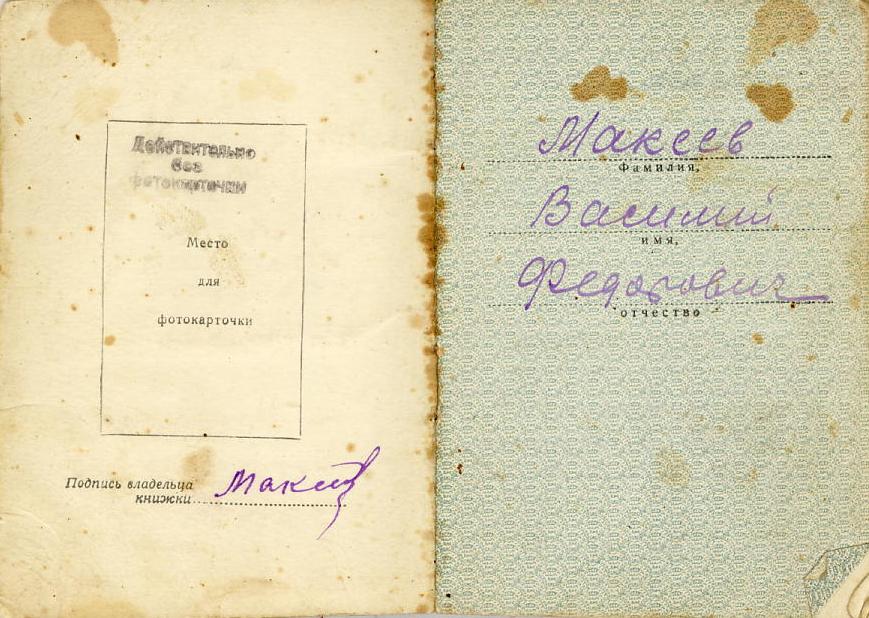 Действительно
без
фотокарточки
Место
для
фотокарточки
Подпись владельца
книжки
Макеев
Макеев
Фамилия,
Василий
имя,
Федорович
отчество